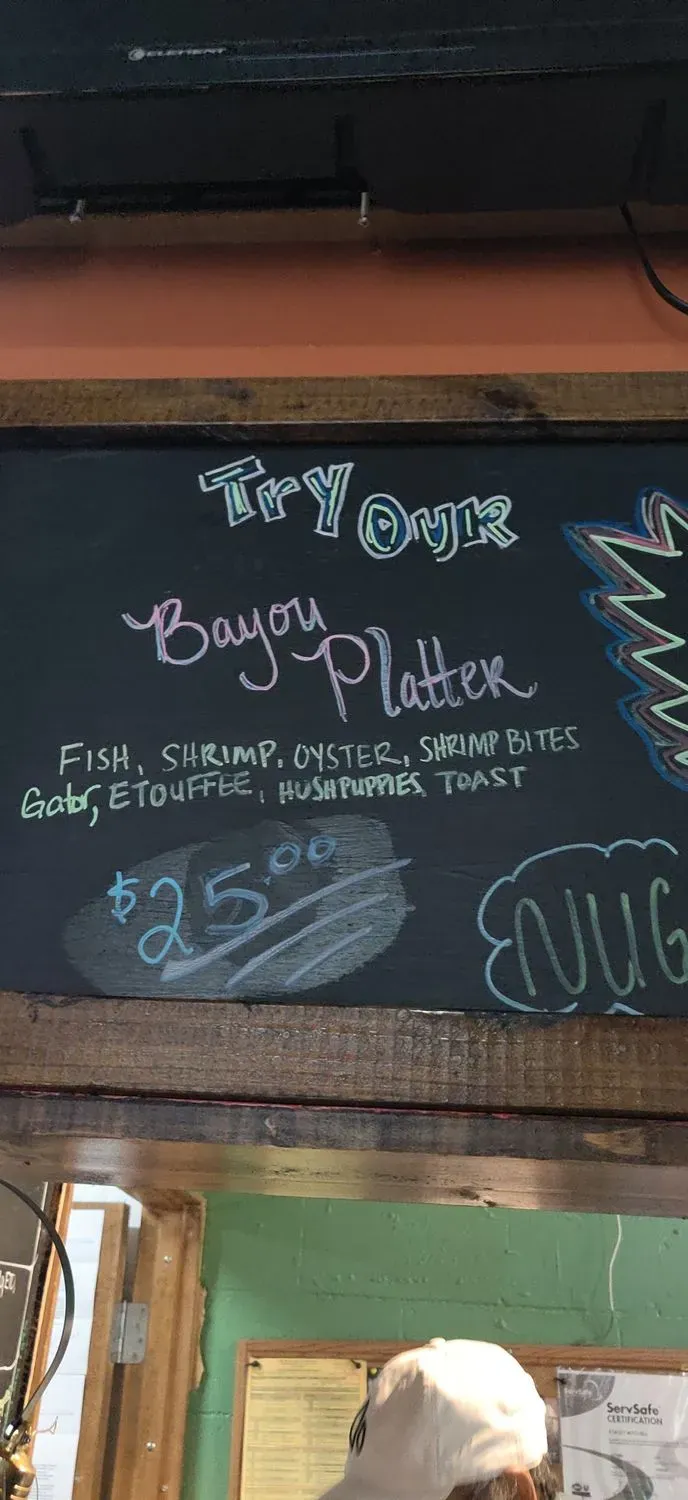 ELEMENT
Try OUR
Bayou
Platter
FISH, SHRIMP, OYSTER, SHRIMP BITES
Gator, ETOUFFEE, HUSHPUPPIES, TOAST
$25.00
NUG
ServSafe
CERTIFICATION